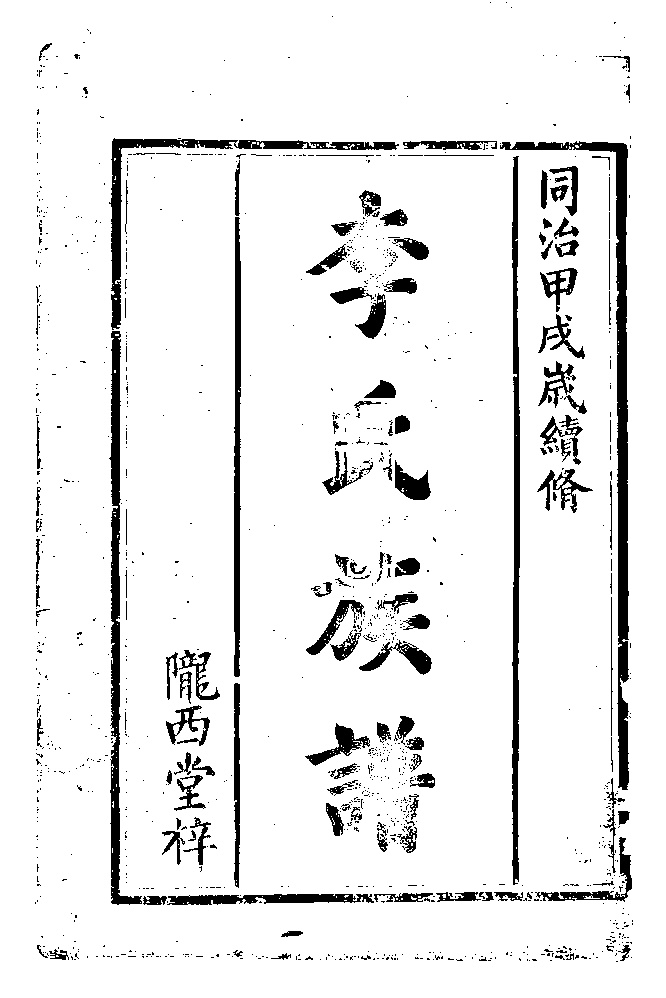 同治甲戌歲續脩
李氏族譜
隴西堂梓